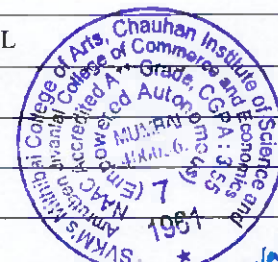 L
SVKM's Mithibai College of Arts, Chauhan Institute of Science and
Amrutben Jivanlal College of Commerce and Economics
NAAC Accredited A++ Grade, CGPA : 3.55
(Empowered Autonomous)
MUMBAI
7
1961
★